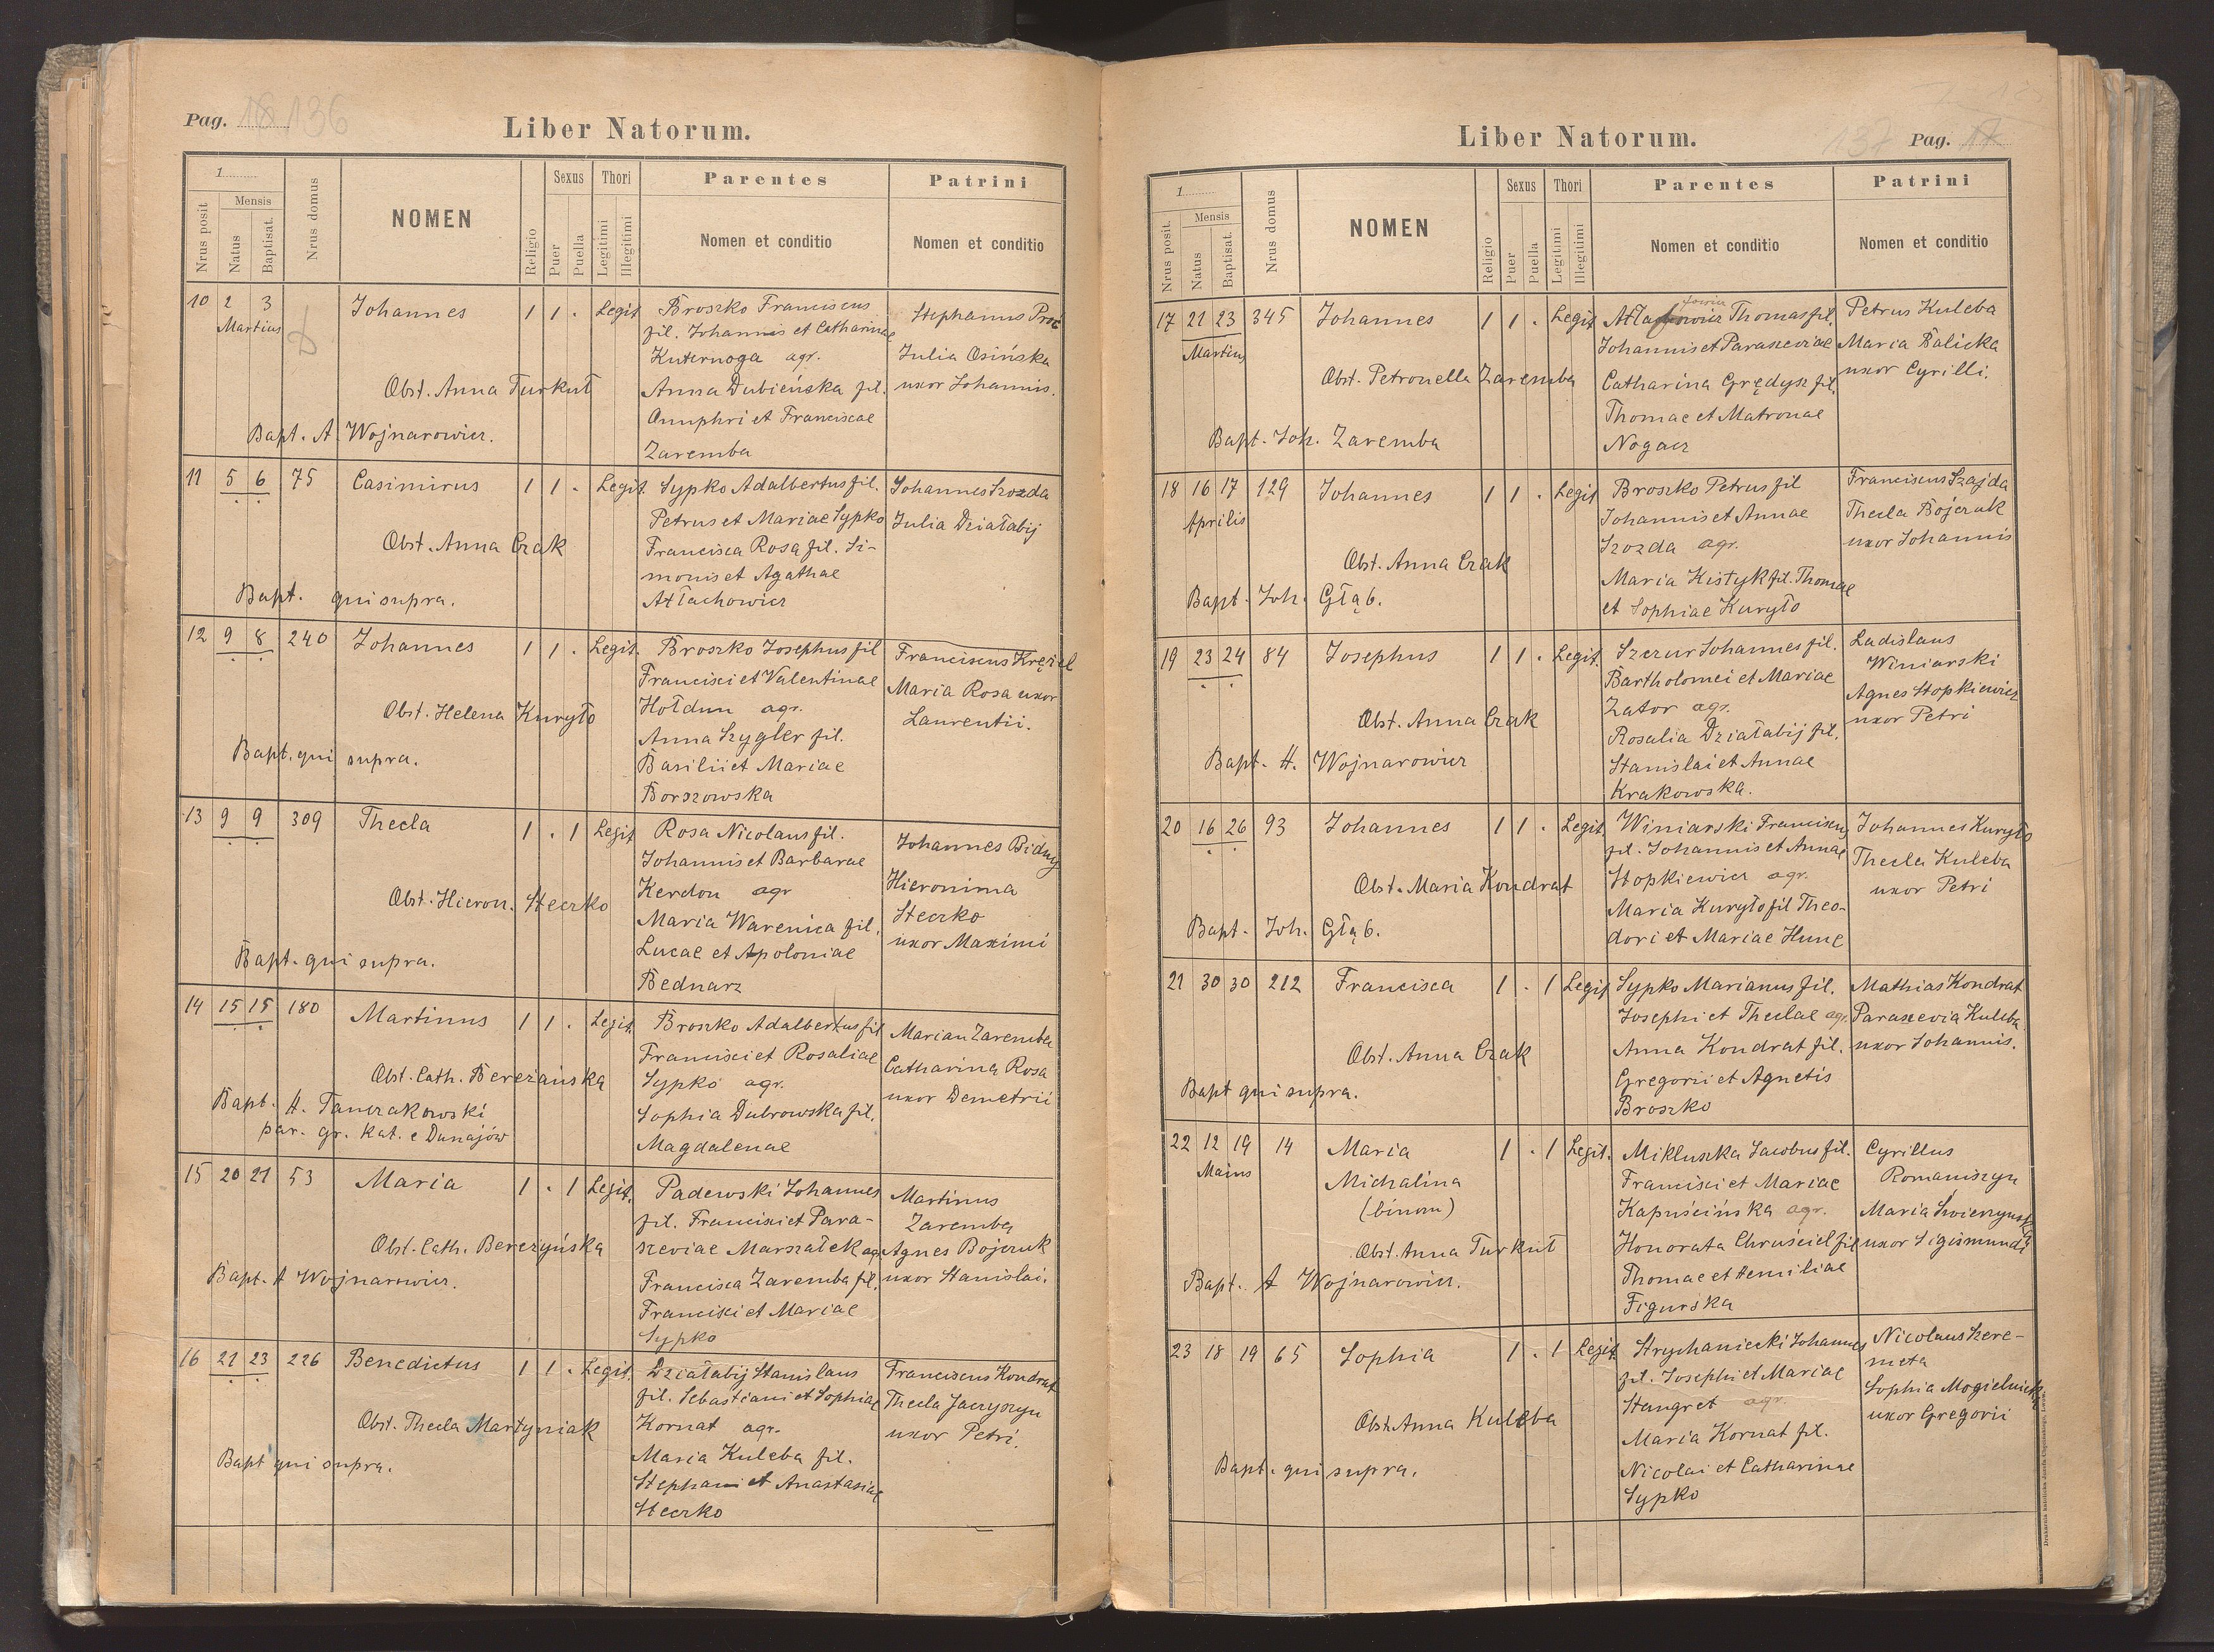 Pag. 18 136
Liber Natorum.
1
Nrus posit
Mensis
Natus
Baptisat.
Nrus domus
NOMEN
Religio
Sexus
Puer
Puella
Thori
Legitimi
Illegitimi
Parentes
Nomen et conditio
Patrini
Nomen et conditio
10 2 3 Johannes 1 1 . Legit. Broszko Franciscus
Martius
fil. Johannis et Catharinae
Kuternoga agr.
Obst. Anna Turkut
Anna Dubieńska fil.
Onuphri et Franciscae
Bapt. A. Wojnarowicz.
Zaremba
Stephanus Proć
Julia Osińska
uxor Johannis.
11 5 6 75 Casimirus 1 1 . Legit. Sypko Adalbertus fil.
Petrus et Mariae Sypko
Obst. Anna Czak
Francisca Rosa fil. Si-
monis et Agathae
Bapt. qui supra.
Attachowicz
Johannes Szozda
Julia Działabij
12 9 8 240 Johannes 1 1 . Legit. Broszko Josephus fil
Francisci et Valentinae
Obst. Helena Kuryło
Hołdun agr.
Anna Szygler fil.
Bapt. qui supra.
Basilii et Mariae
Borszowska
Franciscus Kręziel
Maria Rosa uxor
Laurentii.
13 9 9 309 Thecla 1 . 1 Legit. Rosa Nicolaus fil.
Johannis et Barbarae
Obst. Hieron. Steczko
Kerdon agr
Maria Warenica fil.
Bapt. qui supra.
Lucae et Apoloniae
Bednarz
Johannes Bidny
Hieronima
Steczko
uxor Maximi
14 15 15 180 Martinus 1 1 . Legit. Broszko Adalbertus fil
Francisci et Rosaliae
Obst. Cath. Bereżańska
Sypko agr.
Bapt. A. Tanczakowski
Sophia Dubrowska fil.
par. gr. kat. e Dunajów
Magdalenae
Marian Zaremba
Catharina Rosa
uxor Demetrii
15 20 21 53 Maria 1 . 1 Legit. Padewski Johannes
fil. Francisci et Para-
Obst. Cath. Bereżyńska
szeviae Marszałek agr.
Bapt. A Wojnarowicz.
Francisca Zaremba fil.
Francisci et Mariae
Sypko
Martinus
Zaremba
Agnes Bojczuk
uxor Stanislai.
16 21 23 226 Benedictus 1 1 . Legit. Działabij Stanislaus
fil. Sebastiani et Sophiae
Obst. Thecla Martyniak
Kornat agr.
Bapt qui supra.
Maria Kuleba fil.
Stephani et Anastasiae
Steczko
Franciscus Kondrat
Thecla Jaczyszyn
uxor Petri.
Liber Natorum.
137 Pag. 17
1
Nrus posit.
Mensis
Natus
Baptisat.
Nrus domus
NOMEN
Religio
Sexus
Puer
Puella
Thori
Legitimi
Illegitimi
Parentes
Nomen et conditio
Patrini
Nomen et conditio
17 21 23 345 Johannes 1 1 . Legit. Thomas fil.
Martius
Johannis et Parasceviae
Obst. Petronella Zaremba
Catharina Grędysz fil.
Thomae et Matronae
Bapt. Joh. Zaremba
Nogacz
Petrus Kuleba
Maria Balicka
uxor Cyrilli.
18 16 17 129 Johannes 1 1 . Legit Broszko Petrus fil
Aprilis
Johannis et Annae
Szozda agr.
Obst. Anna Czak
Maria Kistyk fil. Thomae
Bapt. Joh. Głąb.
et Sophiae Kuryło
Franciscus Szajda
Thecla Bojczuk
uxor Johannis
19 23 24 84 Josephus 1 1 . Legit. Szczur Johannes fil.
Bartholomei et Mariae
Zator agr.
Obst. Anna Czak
Rosalia Działabij fil.
Bapt. A. Wojnarowicz
Stanislai et Annae
Krakowska.
Ladislaus
Winiarski
Agnes Stopkiewicz
uxor Petri
20 16 26 93 Johannes 1 1 . Legit. Winiarski Franciscus
fil. Johannis et Annae
Obst. Maria Kondrat
Stopkiewicz agr.
Maria Kuryło fil Theo-
Bapt. Joh. Głąb.
dori et Mariae Hune
Johannes Kuryło
Thecla Kuleba
uxor Petri
21 30 30 212 Francisca 1 . 1 Legit Sypko Marianus fil.
Josephi et Theclae agr.
Obst. Anna Czak
Anna Kondrat fil.
Bapt qui supra.
Gregorii et Agnetis
Broszko
Mathias Kondrat
Parascevia Kuleba
uxor Johannis.
22 12 19 14 Maria 1 . 1 Legit. Mikluszka Jacobus fil.
Maius
Michalina
Francisci et Mariae
(binom)
Kapuścińska agr.
Obst. Anna Turkut
Honorata Chruściel fil
Bapt. A Wojnarowicz.
Thomae et Aemiliae
Figurska
Cyrillus
Romaniszyn
Maria Swierzynska
uxor Sigismundi
23 18 19 65 Sophia 1 . 1 Legit. Strychaniecki Johannes
fil. Josephi et Mariae
Stangret agr.
Obst. Anna Kuleba
Maria Kornat fil.
Bapt. qui supra.
Nicolai et Catharinae
Sypko
Nicolaus Szere-
meta
Sophia Mogielnicka
uxor Gregorii